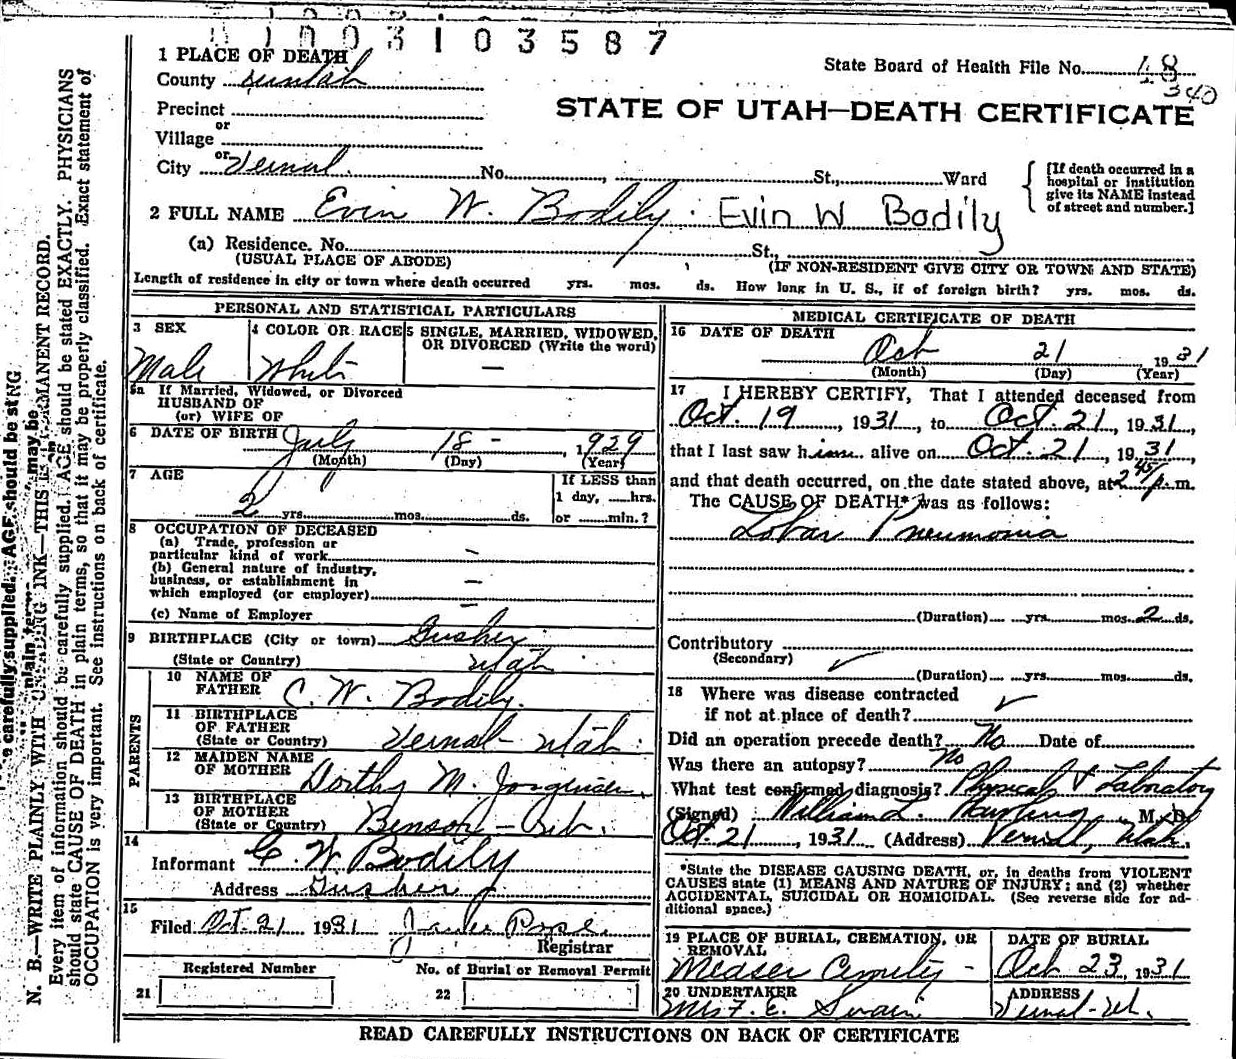 1003103587
1 PLACE OF DEATH
State Board of Health File No. 48
340
County Uintah
STATE OF UTAH—DEATH CERTIFICATE
Precinct
or
Village
or
City Vernal No. , St., Ward
[If death occurred in a
hospital or institution
give its NAME instead
of street and number.]
2 FULL NAME Evin W. Bodily. Evin W Bodily
(a) Residence. No. St.,
(USUAL PLACE OF ABODE) (IF NON-RESIDENT GIVE CITY OR TOWN AND STATE)
Length of residence in city or town where death occurred yrs. mos. ds. How long in U. S., if of foreign birth? yrs. mos. ds.
PERSONAL AND STATISTICAL PARTICULARS
3 SEX 4 COLOR OR RACE 5 SINGLE, MARRIED, WIDOWED,
OR DIVORCED (Write the word)
Male White —
5a If Married, Widowed, or Divorced
HUSBAND OF
(or) WIFE OF
6 DATE OF BIRTH July 18 - , 1929
(Month) (Day) (Year)
7 AGE If LESS than
1 day, hrs.
2 yrs. mos. ds. or min.?
8 OCCUPATION OF DECEASED
(a) Trade, profession or
particular kind of work —
(b) General nature of industry,
business, or establishment in
which employed (or employer) —
(c) Name of Employer —
9 BIRTHPLACE (City or town) Gusher
(State or Country) Utah
PARENTS
10 NAME OF
FATHER C. W. Bodily.
11 BIRTHPLACE
OF FATHER
(State or Country) Vernal - Utah.
12 MAIDEN NAME
OF MOTHER Dorthy M. Jorgensen.
13 BIRTHPLACE
OF MOTHER
(State or Country) Benson - Ut.
14
Informant C. W. Bodily
Address Gusher
15
Filed Oct. 21 1931
Registrar
Registered Number No. of Burial or Removal Permit
21 22
MEDICAL CERTIFICATE OF DEATH
16 DATE OF DEATH
Oct 21 1931
(Month) (Day) (Year)
17 I HEREBY CERTIFY, That I attended deceased from
Oct. 19, 1931, to Oct. 21, 1931,
that I last saw him alive on Oct. 21, 1931,
and that death occurred, on the date stated above, at 2 45 p. m.
The CAUSE OF DEATH* was as follows:
Lobar Pneumonia
(Duration) yrs. mos. 2 ds.
Contributory
(Secondary)
(Duration) yrs. mos. ds.
18 Where was disease contracted
if not at place of death?
Did an operation precede death? No Date of
Was there an autopsy? No
What test confirmed diagnosis? Physical & Laboratory
(Signed) William L. M. D.
Oct. 21, 1931 (Address) Vernal, Utah.
*State the DISEASE CAUSING DEATH, or, in deaths from VIOLENT
CAUSES state (1) MEANS AND NATURE OF INJURY; and (2) whether
ACCIDENTAL, SUICIDAL OR HOMICIDAL. (See reverse side for ad-
ditional space.)
19 PLACE OF BURIAL, CREMATION, OR
REMOVAL DATE OF BURIAL
Oct 23, 1931
20 UNDERTAKER ADDRESS
Mrs F. E. Swain Vernal - Ut.
READ CAREFULLY INSTRUCTIONS ON BACK OF CERTIFICATE
N. B.—WRITE PLAINLY WITH UNFADING INK—THIS IS A PERMANENT RECORD.
Every item of information should be carefully supplied. AGE should be stated EXACTLY. PHYSICIANS
should state CAUSE OF DEATH in plain terms, so that it may be properly classified. Exact statement of
OCCUPATION is very important. See instructions on back of certificate.